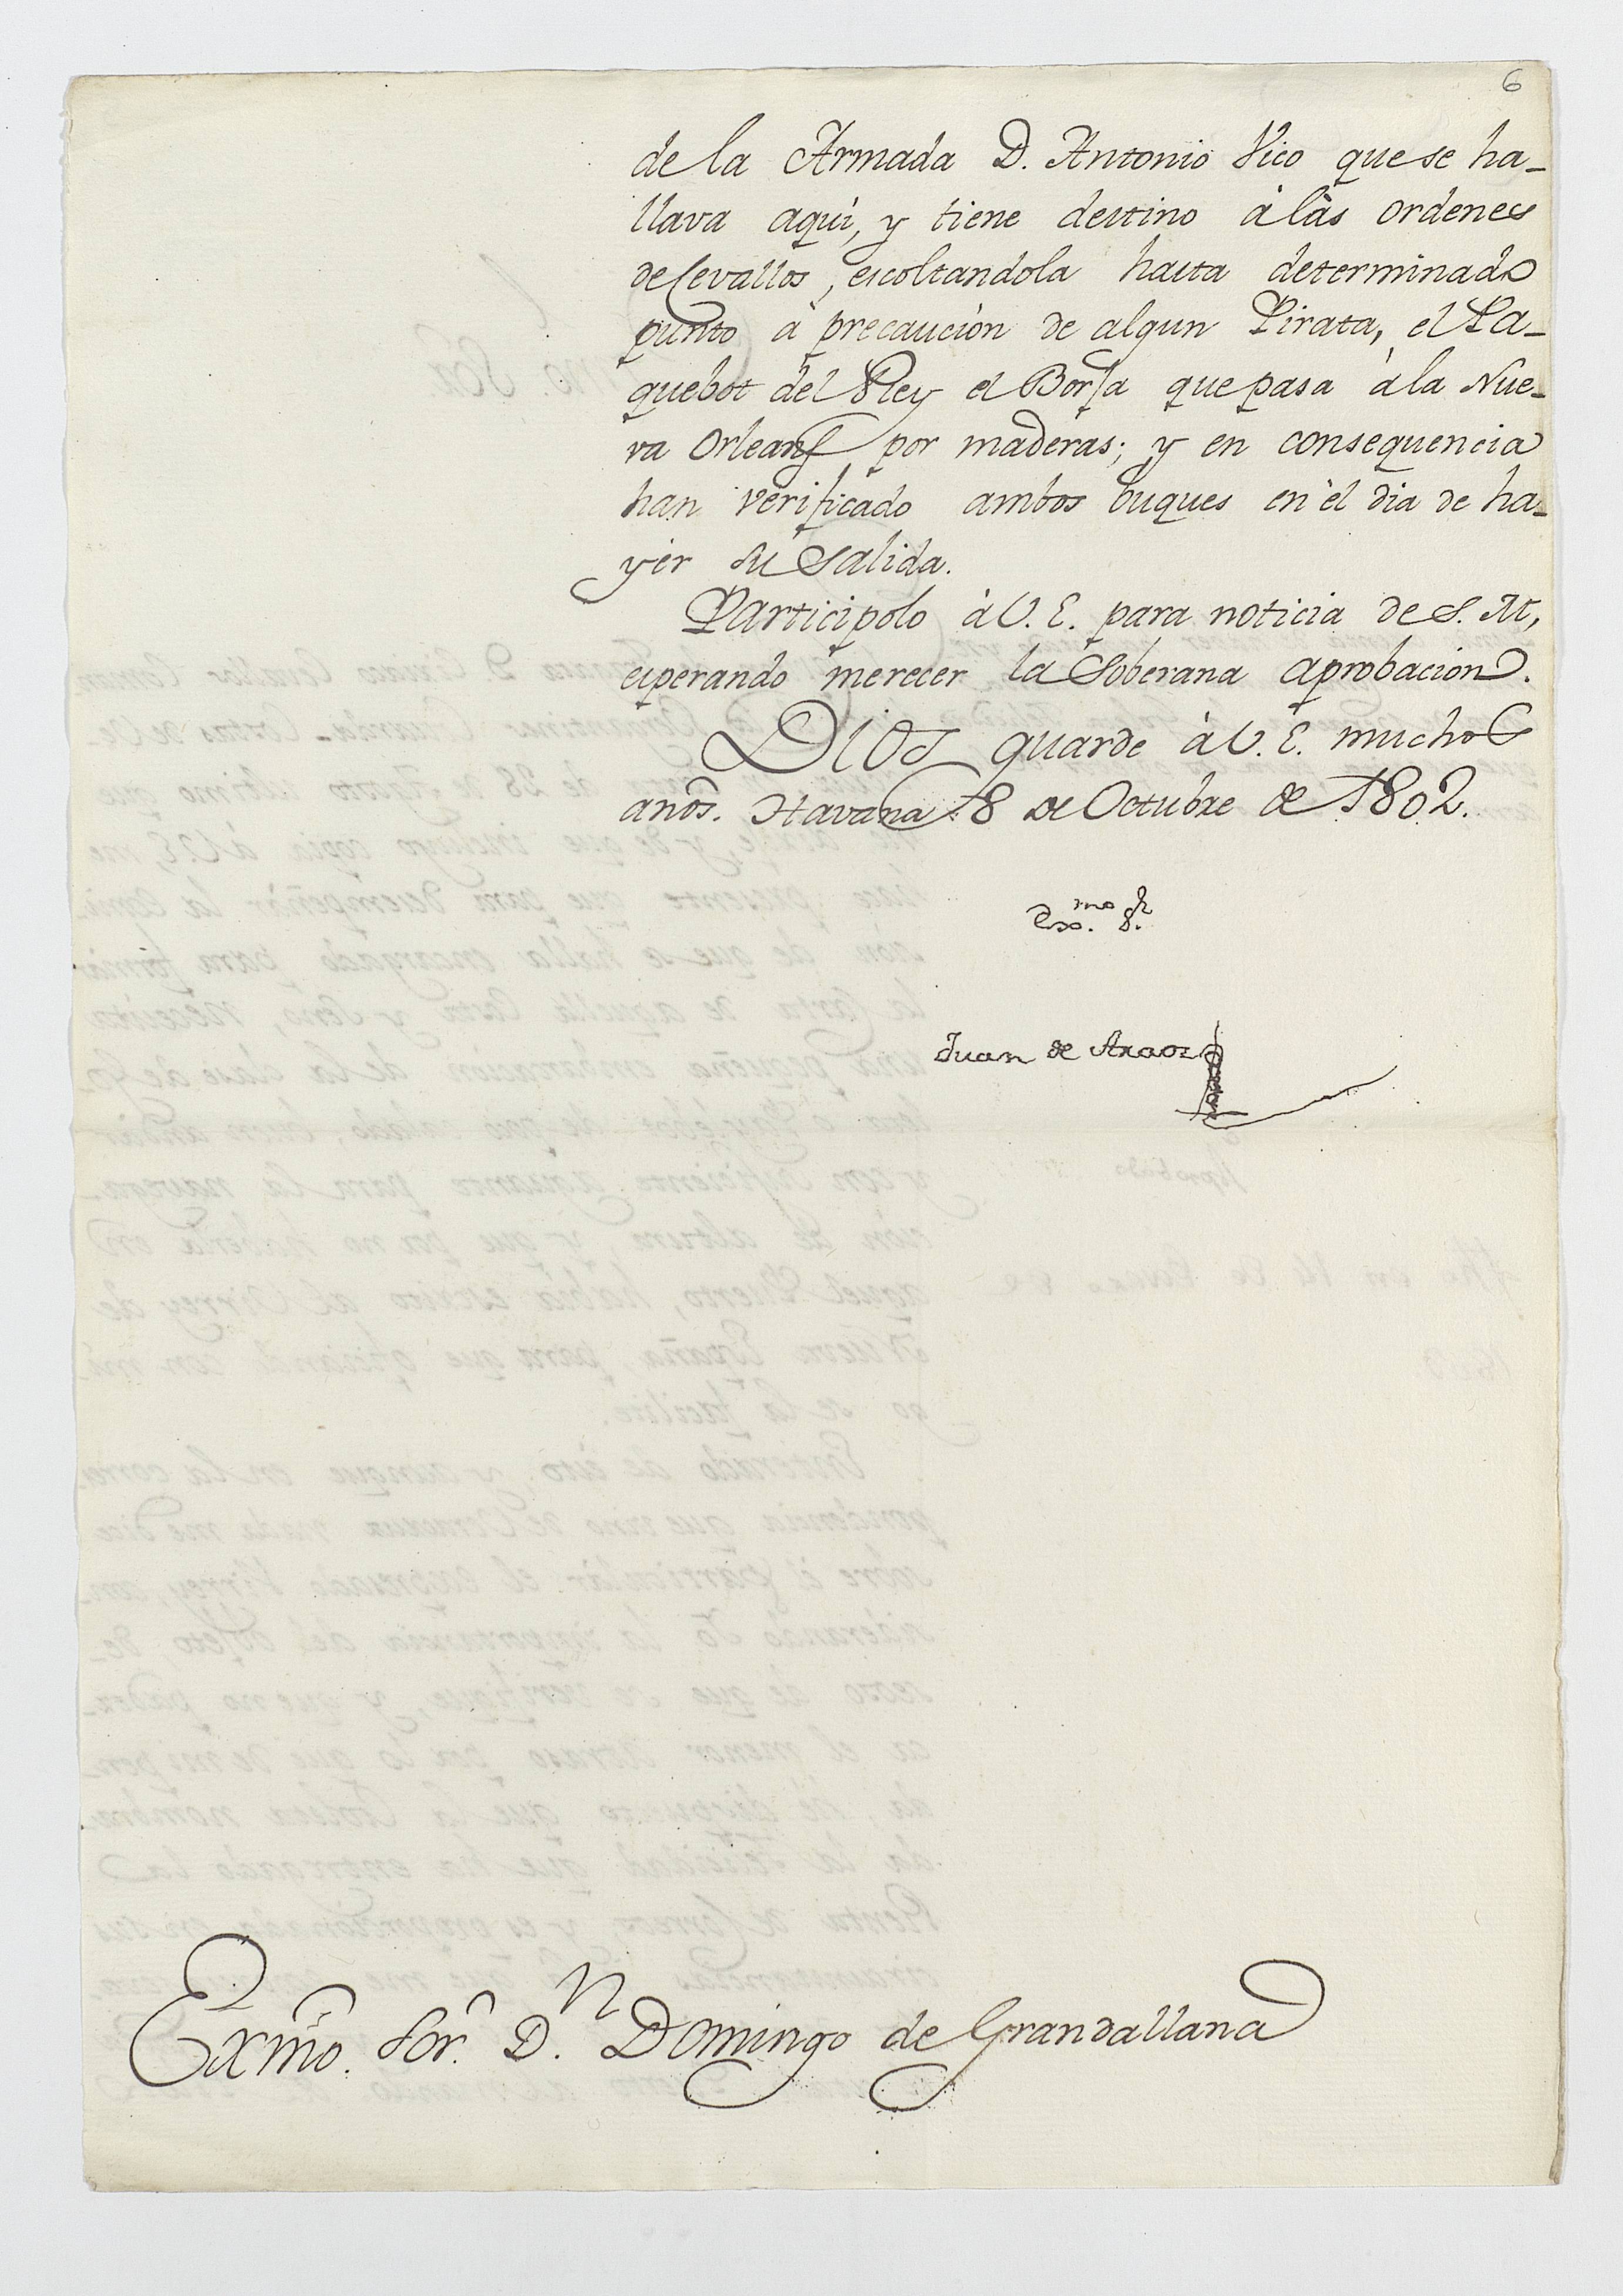 6
de la Armada D. Antonio Vico que se ha-
llava aquì, y tiene destino à làs ordenes
de Cevallos, escoltandola hasta determinado
punto à precaucion de algun Pirata, el Pa-
quebot del Rey el Borja que pasa à la Nue-
va Orleans por maderas; y en consequencia
han verificado ambos buques en èl dia de ha-
yèr su Salida.
Participolo à V. E. para noticia de S. M,
esperando merecer la Soberana aprobacion.
Dios guarde à V. E. muchos
años. Havana 8 de Octubre de 1802.
Exmo. Sr.
Juan de Araoz
Exmo. Sor. Dn. Domingo de Grandallana